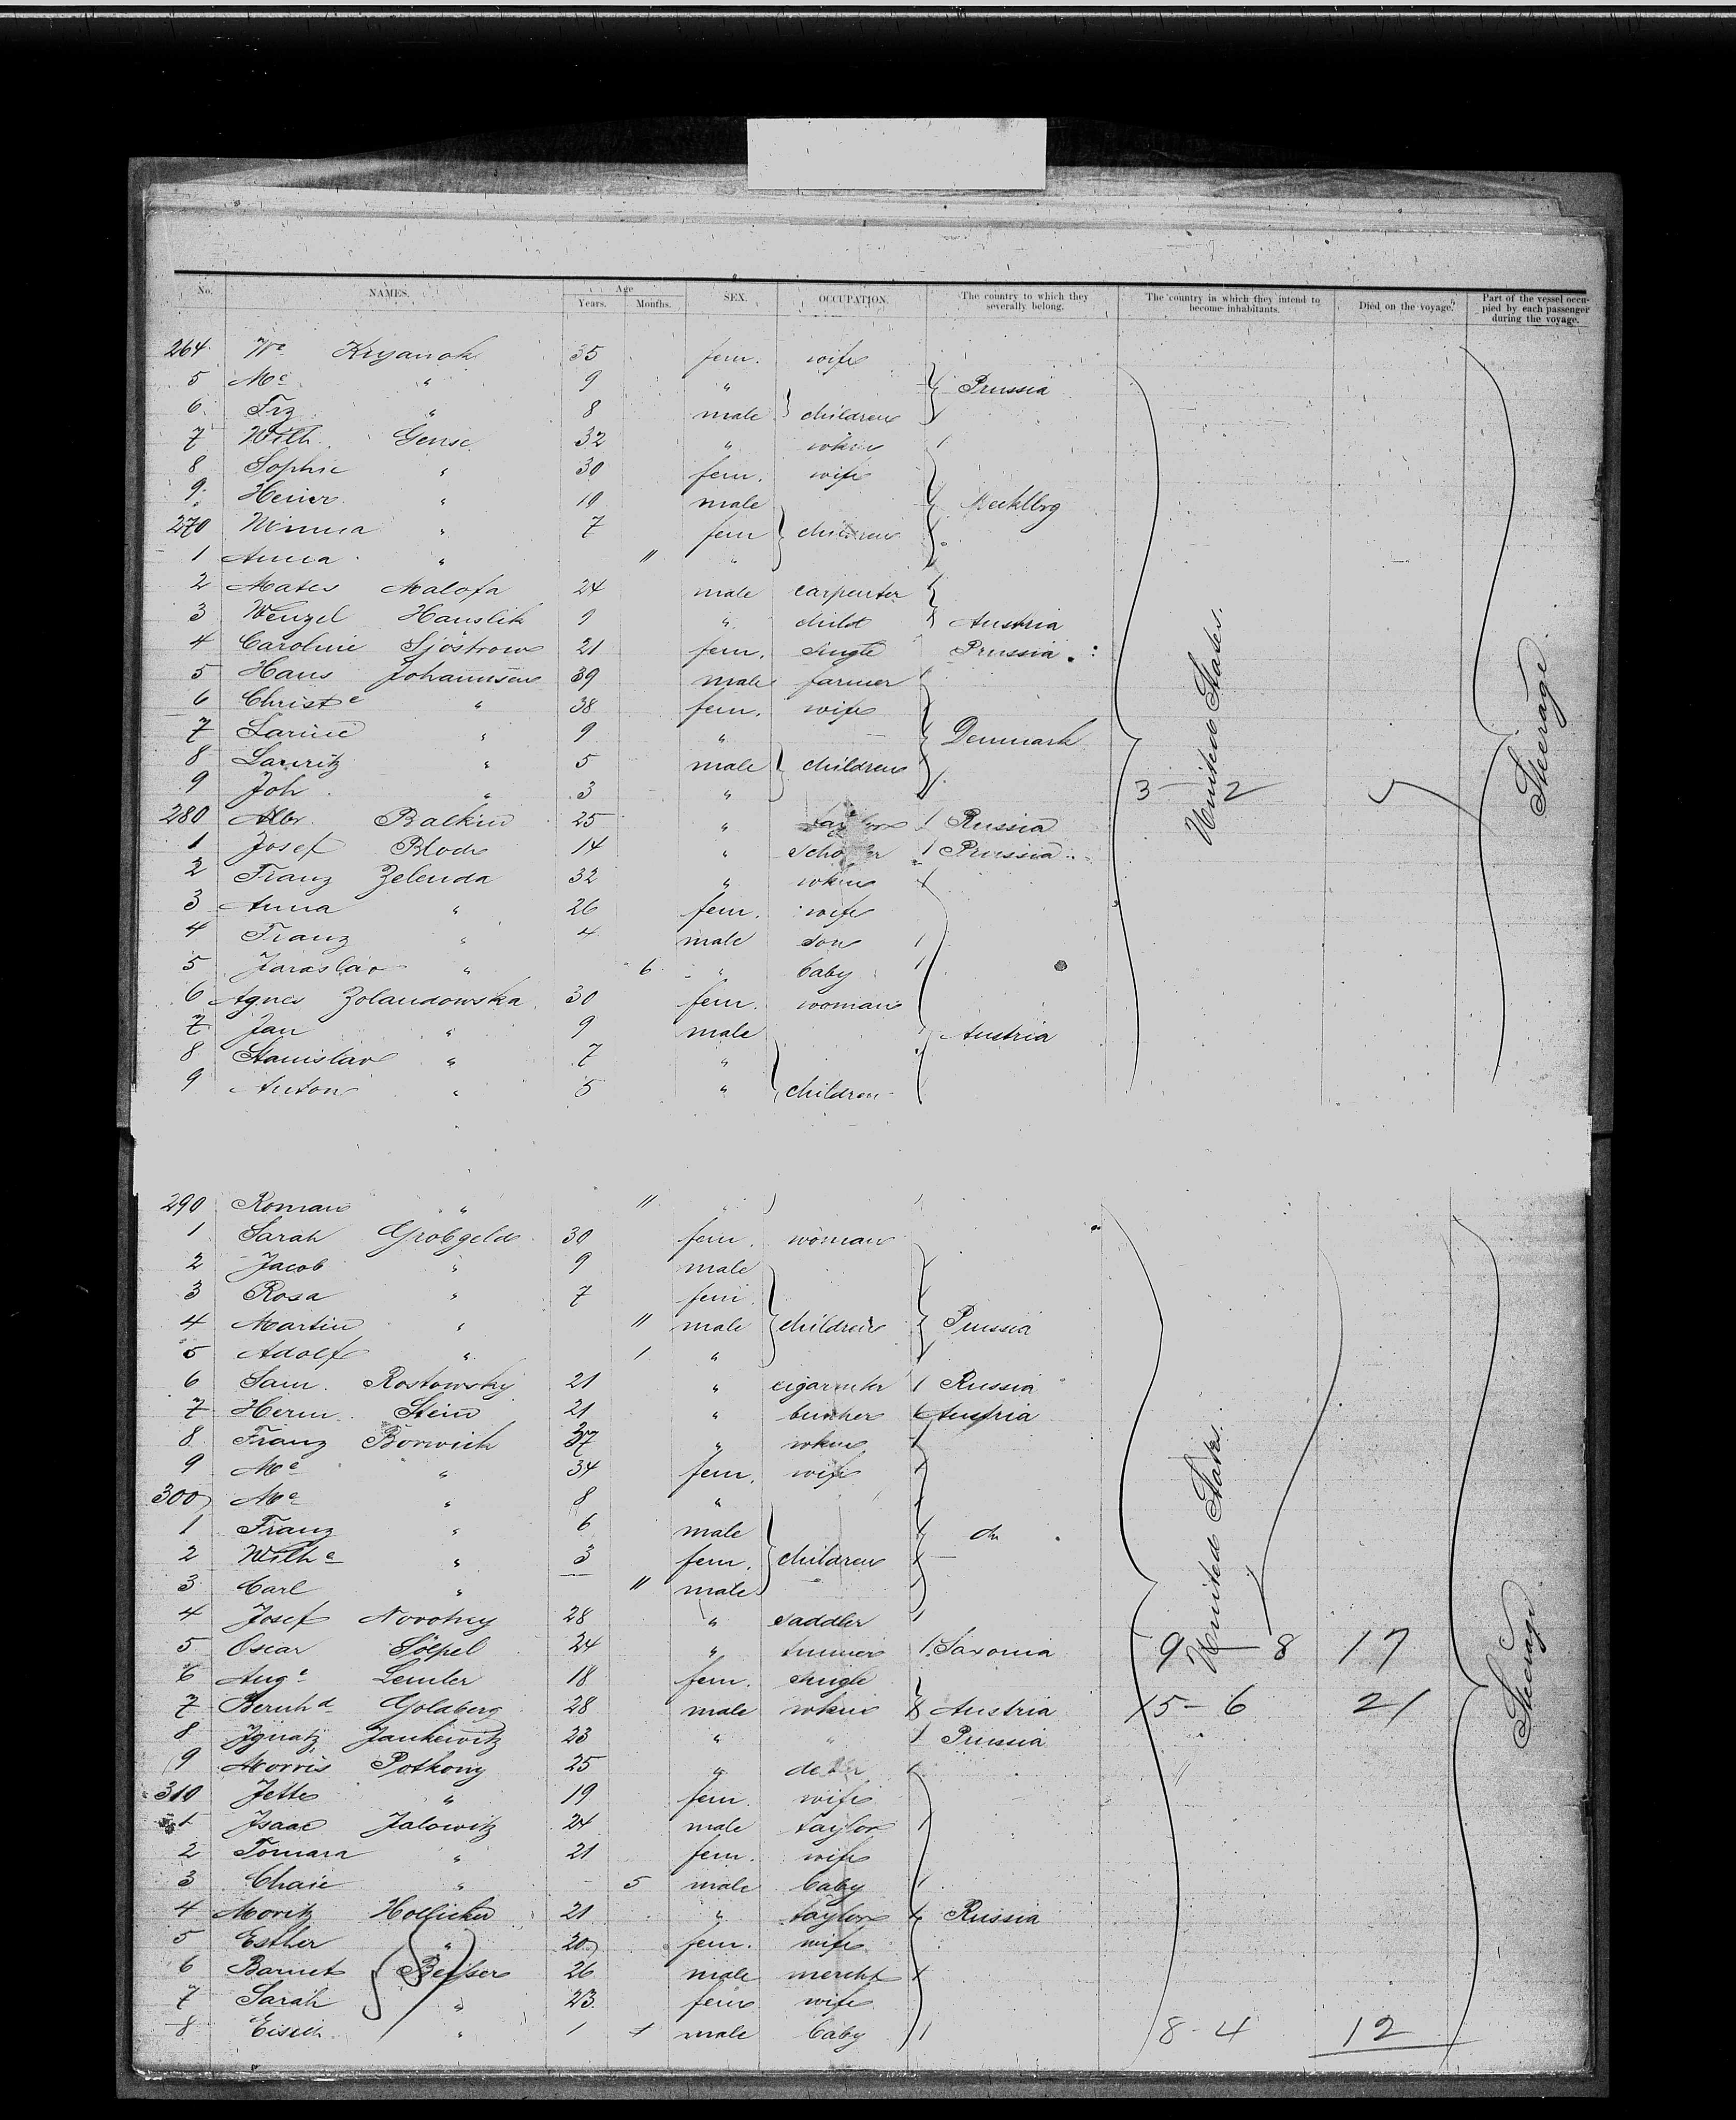 No. NAMES. Age Years. Months. SEX. OCCUPATION. The country to which they severally belong. The country in which they intend to become inhabitants. Died on the voyage. Part of the vessel occupied by each passenger during the voyage.
264 Kujanok 35 fem. wife
5 Me " 9 " Prussia
6 Frz " 8 male children
7 Wilh. Gense 32 " wkm
8 Sophie " 30 fem. wife
9 Heinr. " 10 male Mecklbrg
270 Minna " 7 fem children
1 Anna " 11 "
2 Mates Malofa 24 male carpenter
3 Wenzel Hanslik 9 " child Austria
4 Caroline Sjöstrom 21 fem. single Prussia
5 Hans Johannsen 39 male farmer
6 Christe " 38 fem. wife
7 Larine " 9 " Denmark
8 Lauritz " 5 male children
9 Joh. " 3 " 3 - 2 5
280 Albr. Balkin 25 " taylor Russia
1 Josef Bloch 14 " Prussia
2 Franz Zelenda 32 " wkm
3 Anna " 26 fem. wife
4 Franz " 4 male son
5 Jaroslav " 6 " baby
6 Agnes Zolandowska 30 fem. woman
7 Jan " 9 male Austria
8 Stanislav " 7 "
9 Anton " 5 " children
United States.
Steerage
290 Roman " 11 "
1 Sarah Grobgeld 30 fem. woman
2 Jacob " 9 male
3 Rosa " 7 fem.
4 Martin " 11 male children Prussia
5 Adolf " 1 "
6 Sam. Rostowsky 21 " cigarmkr Russia
7 Herm. Stein 21 " Austria
8 Franz Borwick 37 " wkm
9 Me " 34 fem. wife
300 Me " 8 "
1 Franz " 6 male do
2 Wilhe " 3 fem. children
3 Carl " 11 male
4 Josef Novotny 28 " saddler
5 Oscar Sölpel 24 " Saxonia 9 - 8 17
6 Auge Lemler 18 fem. single
7 Bernhd Goldberg 28 male wkm Austria 15 - 6 21
8 Ignatz Jankewitz 23 " " Prussia
9 Morris Pothony 25 "
310 Jette " 19 fem. wife
1 Isaac Jalowitz 24 male taylor
2 Tomara " 21 fem. wife
3 Chaie " 5 male baby
4 Moritz Hollicker 21 " taylor Russia
5 Esther " 20 fem. wife
6 Barnet Beisser 26 male mercht
7 Sarah " 23 fem wife
8 Eisik " 1 1 male baby 8 - 4 12
United States.
Steerage